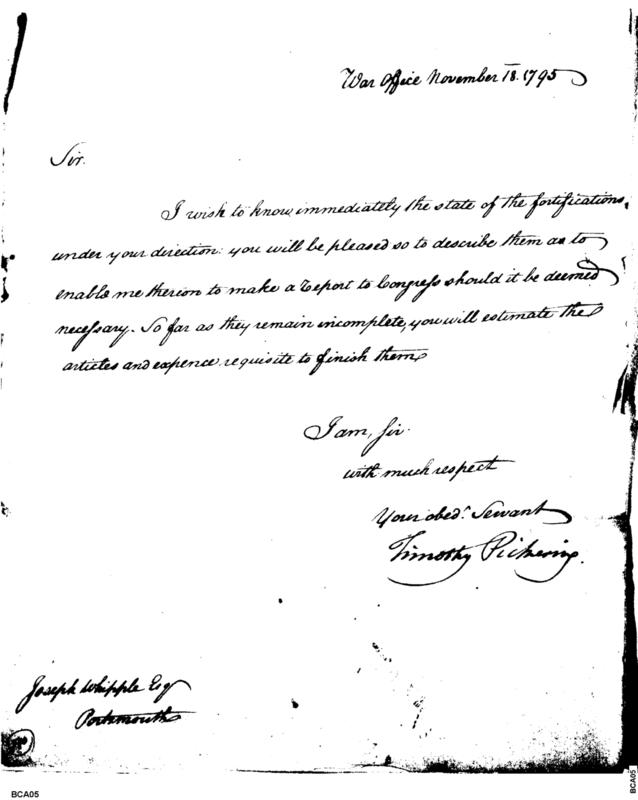 War Office November 18. 1795
Sir.
I wish to know immediately the state of the fortifications,
under your direction: you will be pleased so to describe them as to
enable me therion to make a Report to Congress should it be deemed
necessary. So far as they remain incomplete, you will estimate the
articles and expence requisite to finish them
I am, Sir.
with much respect
Your obed.t Servant
Timothy Pickering.
Joseph Whipple Esq
Portsmouth
BCA05
BCA05